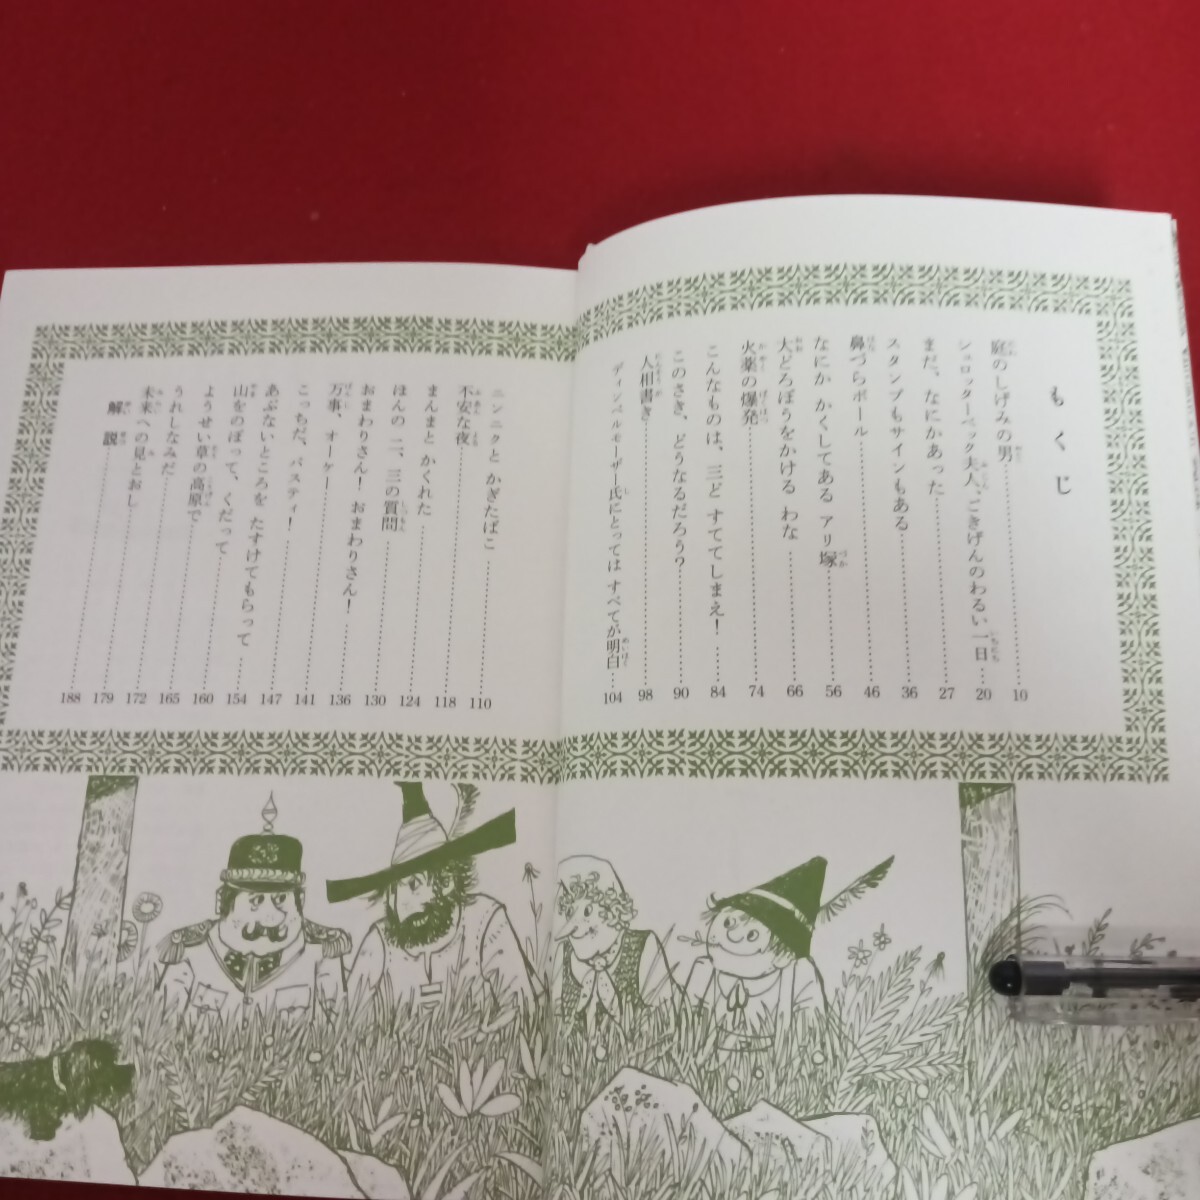 もくじ
庭のしげみの男……10
シュロッターベック夫人、ごきげんのわるい一日…20
まだ、なにかあった……27
スタンプもサインもある……36
鼻づらボール……46
なにか かくしてある アリ塚……56
大どろぼうをかける わな……66
火薬の爆発……74
こんなものは、三ど すててしまえ！……84
このさき、どうなるだろう？……90
人相書き……98
ディンペルモーザー氏にとっては すべてが明白…104
ニンニクと かぎたばこ……110
不安な夜……118
まんまと かくれた……124
ほんの 二、三の質問……130
おまわりさん！ おまわりさん！……136
万事、オーケー……141
こっちだ、バスティ！……147
あぶないところを たすけてもらって……154
山をのぼって、くだって……160
ようせい草の高原で……165
うれしなみだ……172
未来への見とおし……179
解説……188